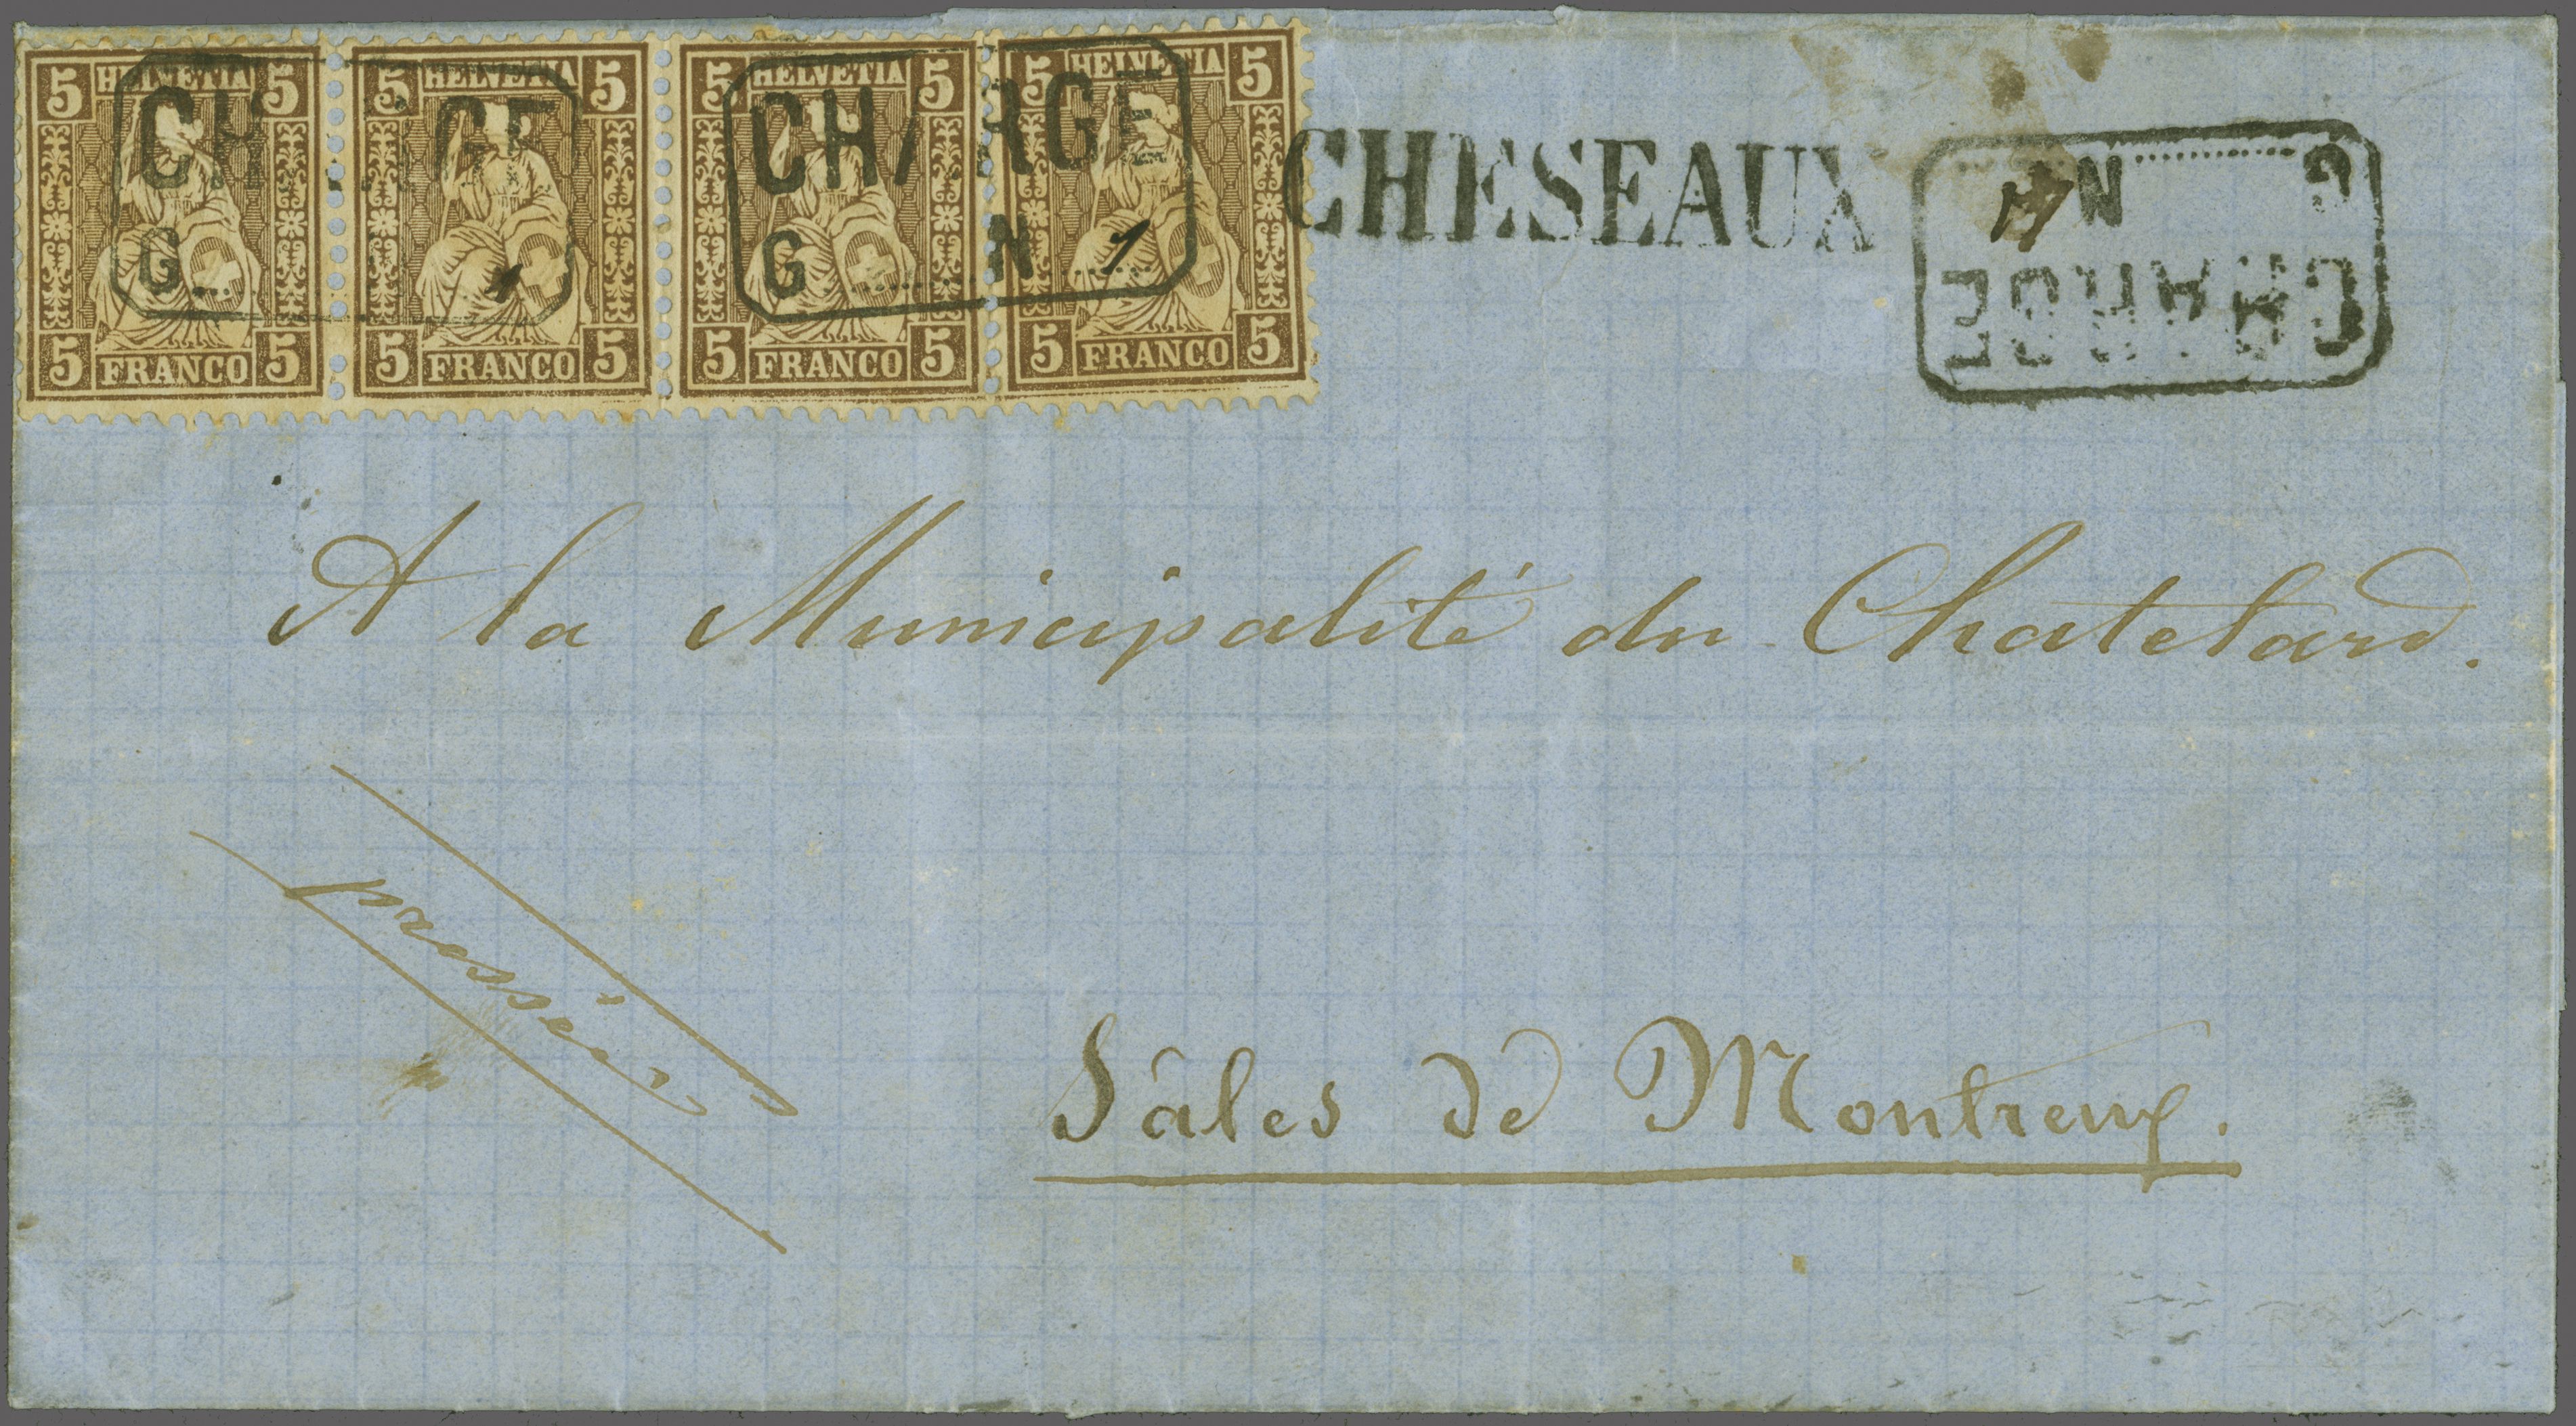 5 HELVETIA 5
5 FRANCO 5
5 HELVETIA 5
5 FRANCO 5
5 HELVETIA 5
5 FRANCO 5
5 HELVETIA 5
5 FRANCO 5
CHARGE
G N 1
CHESEAUX
CHARGE
G N
A la Municipalité du Chatelard.
pressée
Sâles de Montreux.